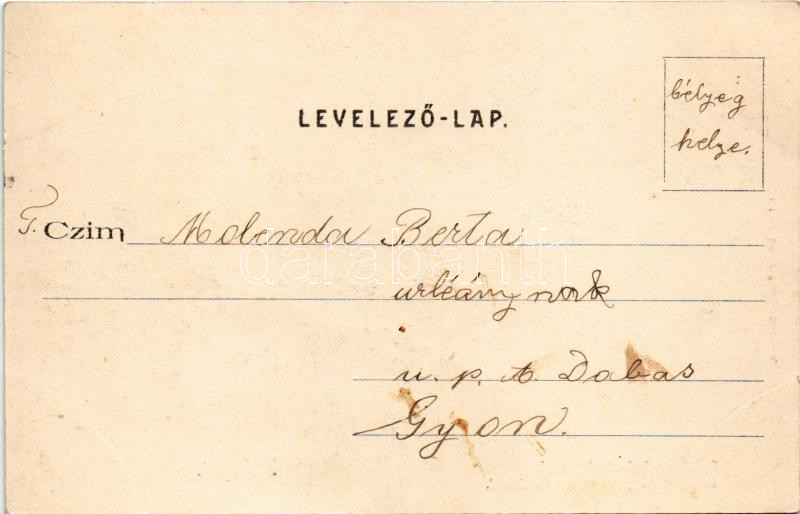 LEVELEZŐ-LAP.
bélyeg
helye.
T. Czim Molenda Berta
urléánynak
u. p. A. Dabas
Gyon.
darabanth